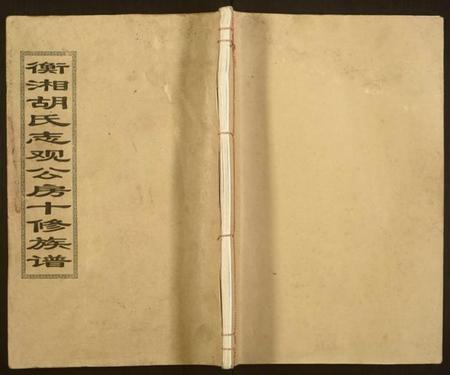 衡湘胡氏志观公房十修族谱